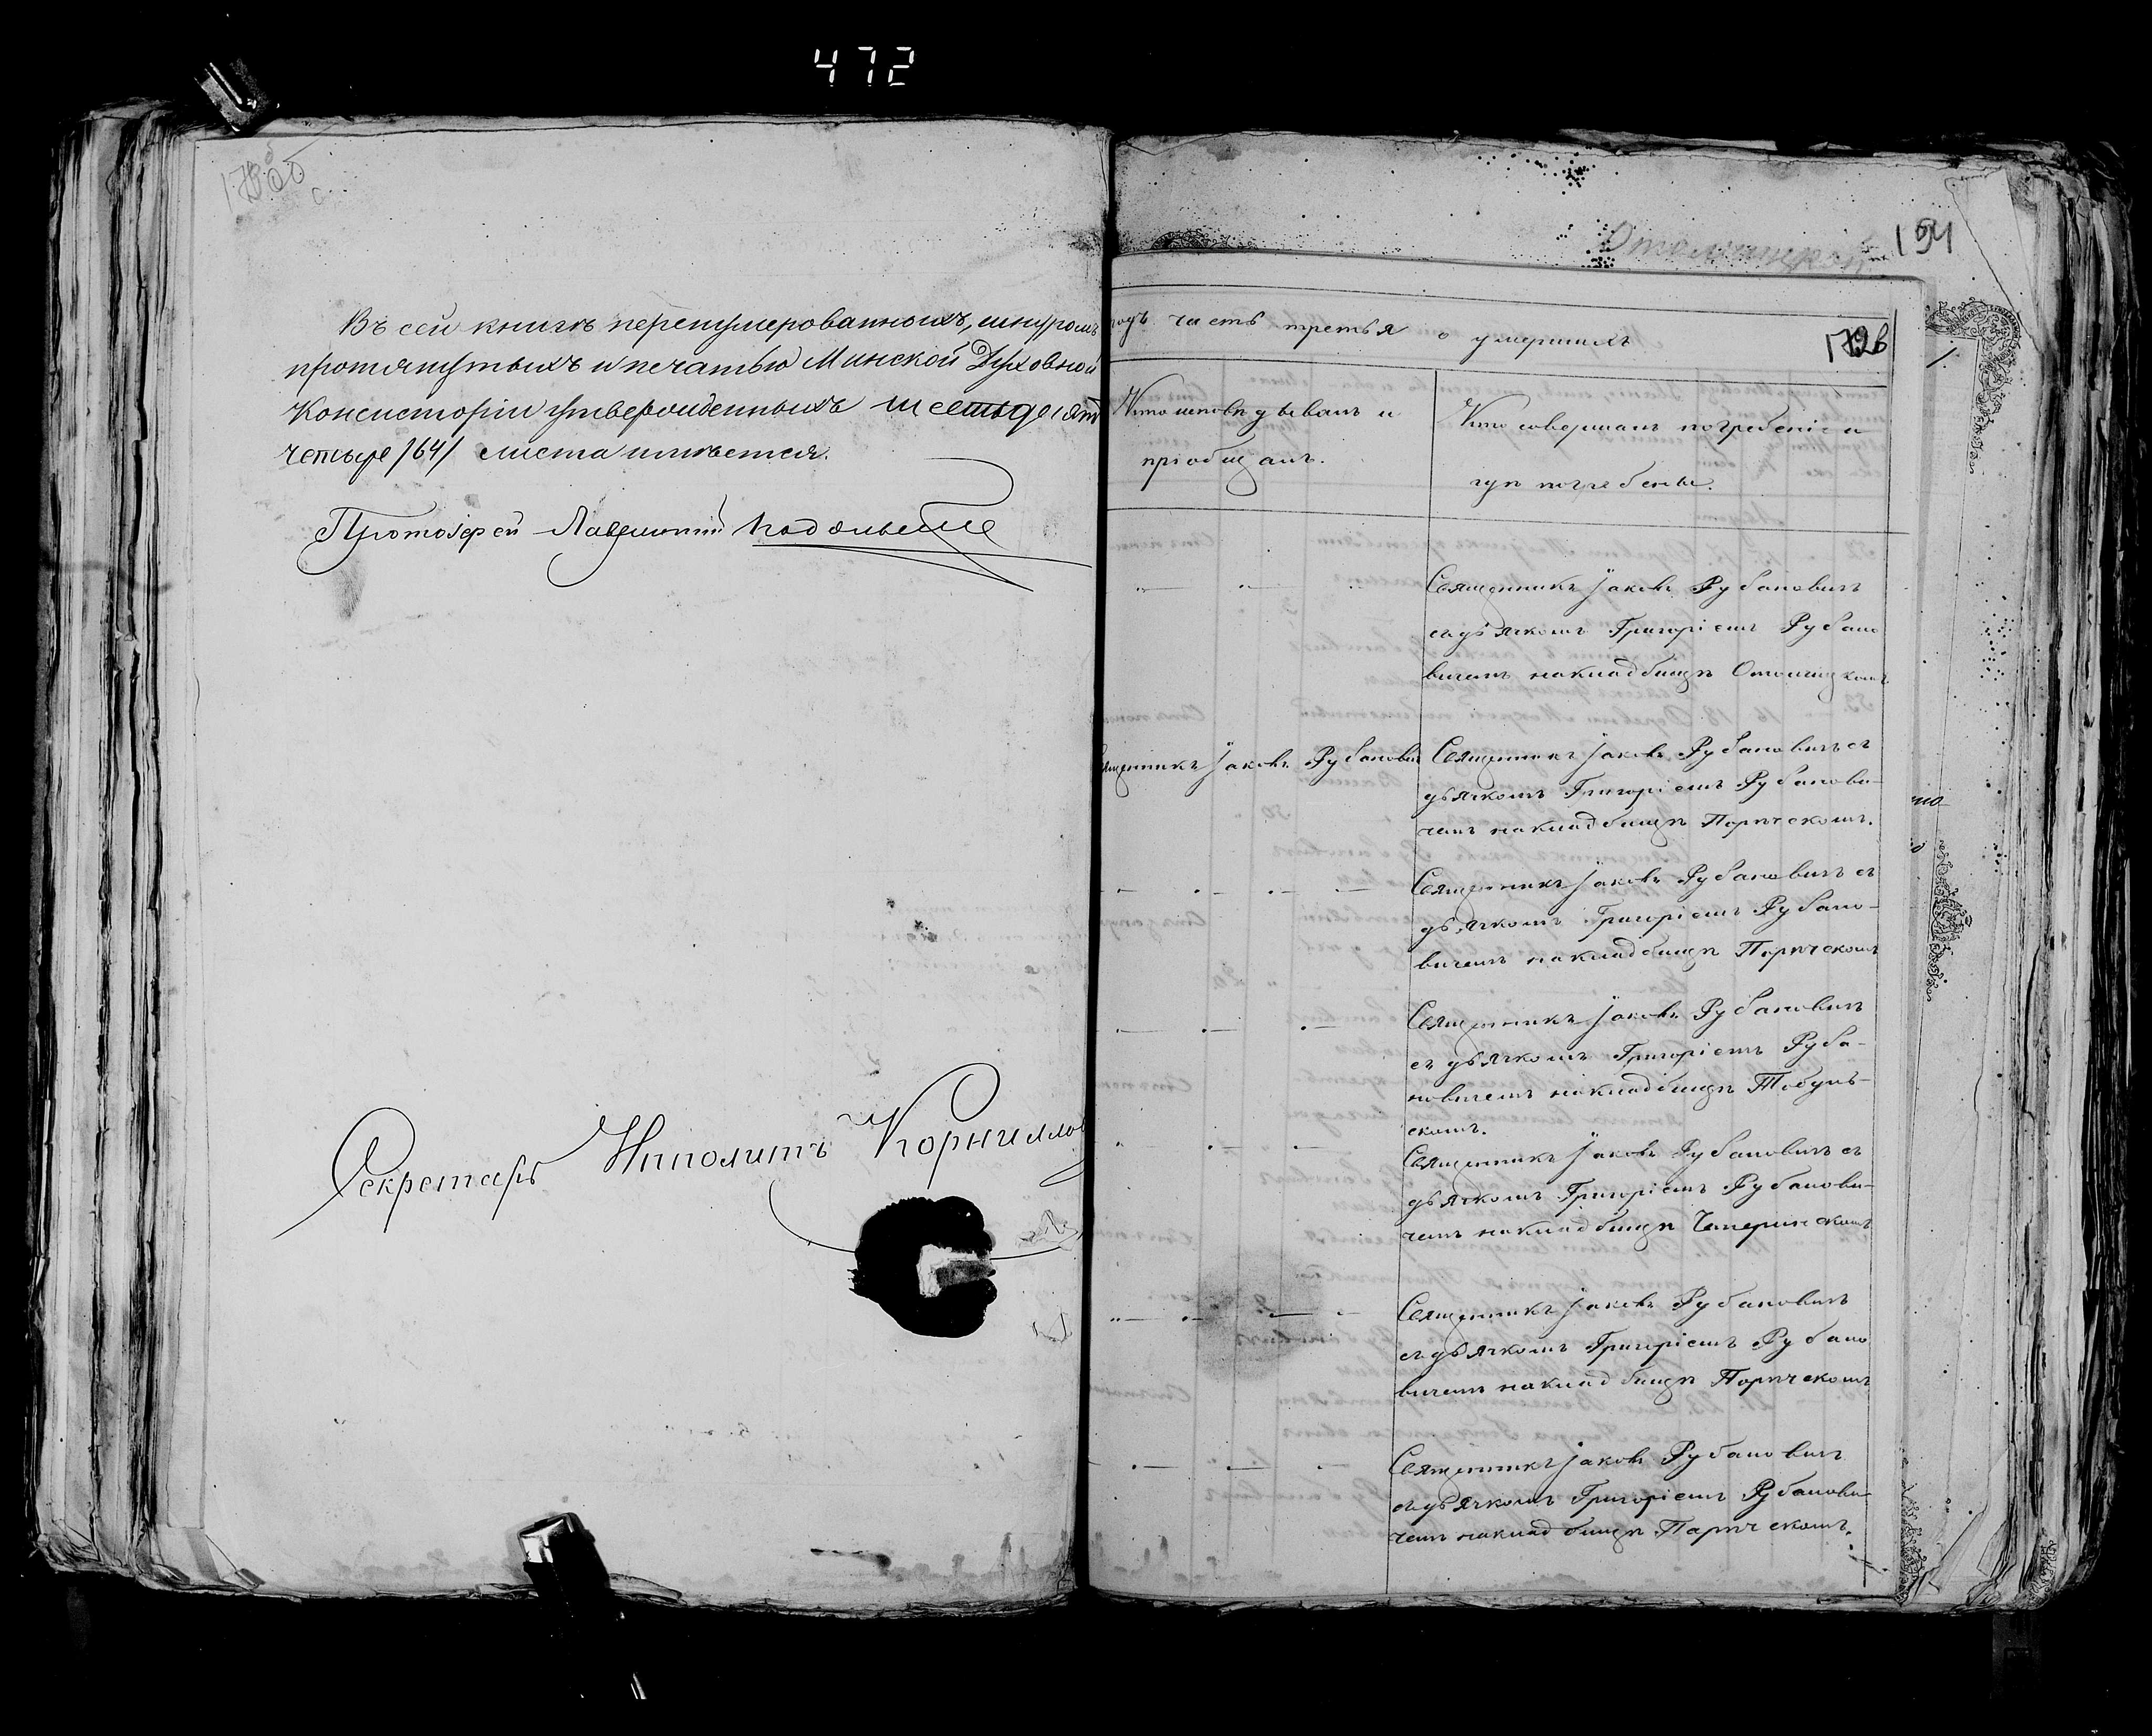 472
Въ сей книгѣ перенумерованныхъ, шнуромъ
протянутыхъ и печатью Минской Духовной
Консисторіи утвержденныхъ шестьдесятъ
четыре /64/ листа имѣется.
Протоіерей
Секретарь Ипполитъ Корнилло
194
годъ часть третья о умершихъ
Кто исповѣдывалъ и
пріобщалъ.
Кто совершалъ погребеніе и
гдѣ погребены.
Священникъ Іаковъ Рубановичъ
съ дьячкомъ Григоріемъ Рубано
вичемъ на кладбищѣ
Священникъ Іаковъ Рубанович
Священникъ Іаковъ Рубановичъ съ
дьячкомъ Григоріемъ Рубанови-
чемъ на кладбищѣ Порѣчскомъ.
Священникъ Іаковъ Рубановичъ съ
дьячкомъ Григоріемъ Рубано-
вичемъ на кладбищѣ Порѣчскомъ
Священникъ Іаковъ Рубановичъ
съ дьячкомъ Григоріемъ Руба-
новичемъ на кладбищѣ Тобуль-
скомъ.
Священникъ Іаковъ Рубановичъ съ
дьячкомъ Григоріемъ Рубанови-
чемъ на кладбищѣ
Священникъ Іаковъ Рубановичъ
съ дьячкомъ Григоріемъ Рубано
вичемъ на кладбищѣ Порѣчскомъ
Священникъ Іаковъ Рубановичъ
съ дьячкомъ Григоріемъ Рубанови-
чемъ на кладбищѣ Парѣчскомъ.